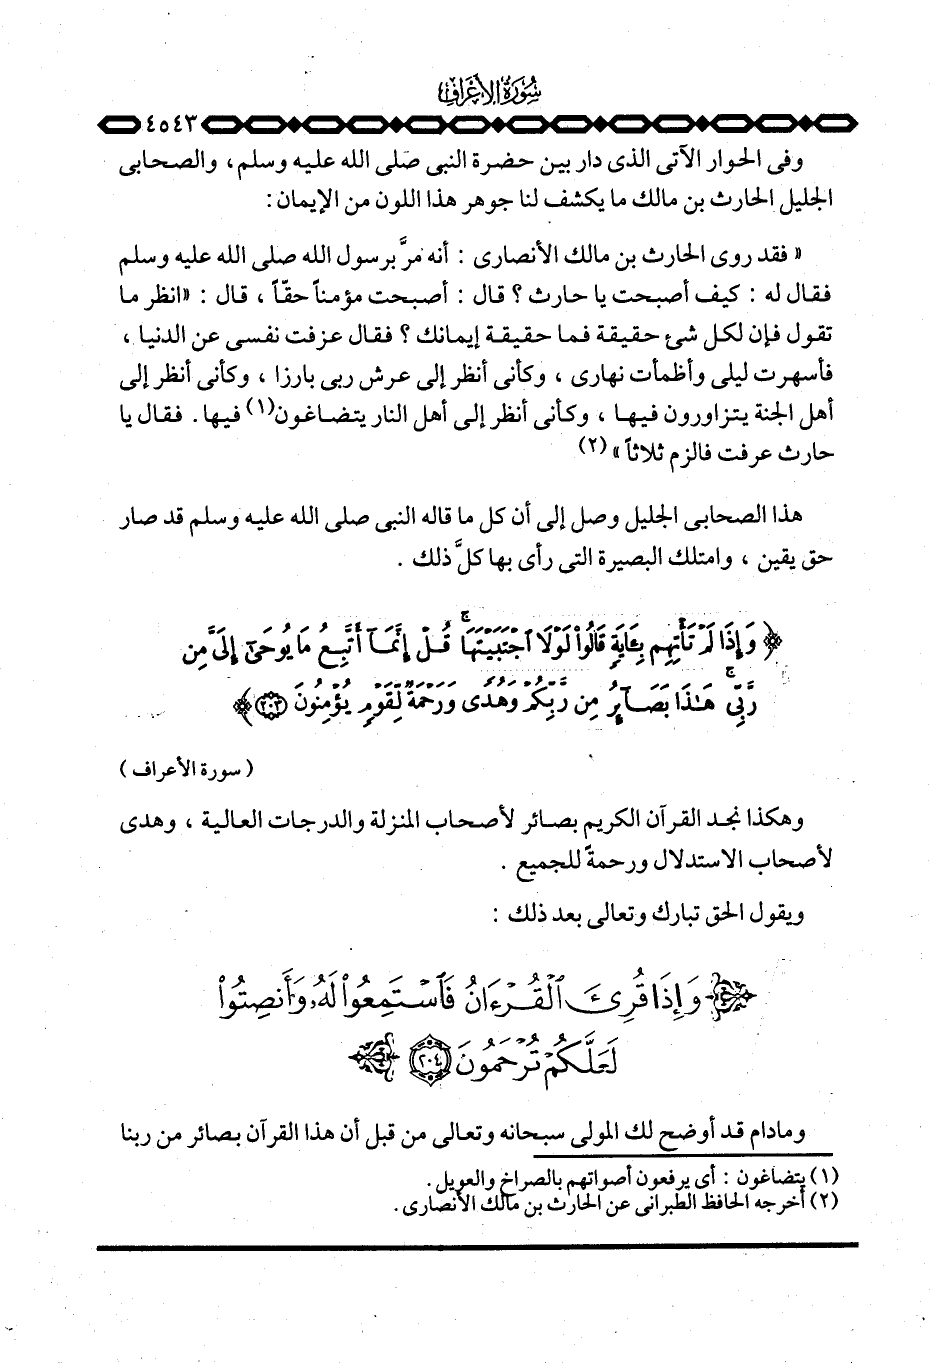 سورة الأعراف
٤٥٤٣
وفى الحوار الآتى الذى دار بين حضرة النبى صلى الله عليه وسلم، والصحابى
الجليل الحارث بن مالك ما يكشف لنا جوهر هذا اللون من الإيمان:
« فقد روى الحارث بن مالك الأنصارى : أنه مرَّ برسول الله صلى الله عليه وسلم
فقال له : كيف أصبحت يا حارث ؟ قال : أصبحت مؤمناً حقّاً ، قال : «انظر ما
تقول فإن لكل شئ حقيقة فما حقيقة إيمانك ؟ فقال عزفت نفسى عن الدنيا ،
فأسهرت ليلى وأظمأت نهارى ، وكأنى أنظر إلى عرش ربى بارزا ، وكأنى أنظر إلى
أهل الجنة يتزاورون فيها ، وكأنى أنظر إلى أهل النار يتضاغون(١) فيها. فقال يا
حارث عرفت فالزم ثلاثاً » (٢)
هذا الصحابى الجليل وصل إلى أن كل ما قاله النبى صلى الله عليه وسلم قد صار
حق يقين ، وامتلك البصيرة التى رأى بها كلَّ ذلك .
﴿ وَإِذَا لَمْ تَأْتِهِم بِـَٔايَةٍ قَالُوا۟ لَوْلَا ٱجْتَبَيْتَهَا ۚ قُلْ إِنَّمَآ أَتَّبِعُ مَا يُوحَىٰٓ إِلَىَّ مِن
رَّبِّى ۚ هَـٰذَا بَصَآئِرُ مِن رَّبِّكُمْ وَهُدًى وَرَحْمَةٌ لِّقَوْمٍ يُؤْمِنُونَ ٢٠٣ ﴾
( سورة الأعراف )
وهكذا نجد القرآن الكريم بصائر لأصحاب المنزلة والدرجات العالية ، وهدى
لأصحاب الاستدلال ورحمةً للجميع .
ويقول الحق تبارك وتعالى بعد ذلك :
﴿ وَإِذَا قُرِئَ ٱلْقُرْءَانُ فَٱسْتَمِعُوا۟ لَهُۥ وَأَنصِتُوا۟
لَعَلَّكُمْ تُرْحَمُونَ ٢٠٤ ﴾
ومادام قد أوضح لك المولى سبحانه وتعالى من قبل أن هذا القرآن بصائر من ربنا
(١) يتضاغون : أى يرفعون أصواتهم بالصراخ والعويل.
(٢) أخرجه الحافظ الطبرانى عن الحارث بن مالك الأنصارى.